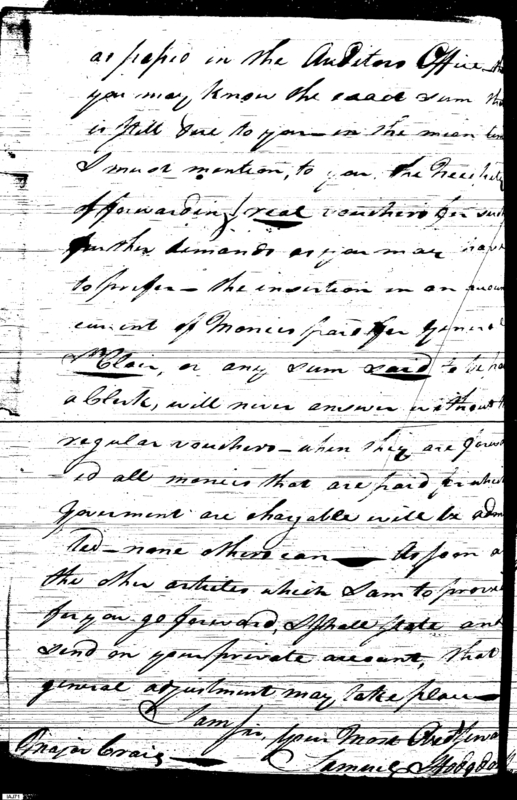 as passed in the Auditors Office
you may know the exact sum
is still due to you – in the mean
I must mention, to you the
of forwarding real vouchers for such
further demands as you may have
to prefer – the insertion in an
current of Monies paid for General
St Clair, or any sum said to be
a Clerk, will never answer without
regular vouchers – when they are
ed all monies that are paid for which
Goverment are chargable will be
ted – none others can — As soon
the other articles which I am to
for you go forward, I shall state and
send on your private account, that
general adjustment may take place –
I am sir, your Most Obed
Major Craig — Samuel Hodgdon
IAJ71